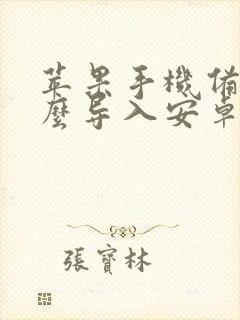 苹果手機備
麼导入安卓
張寶林